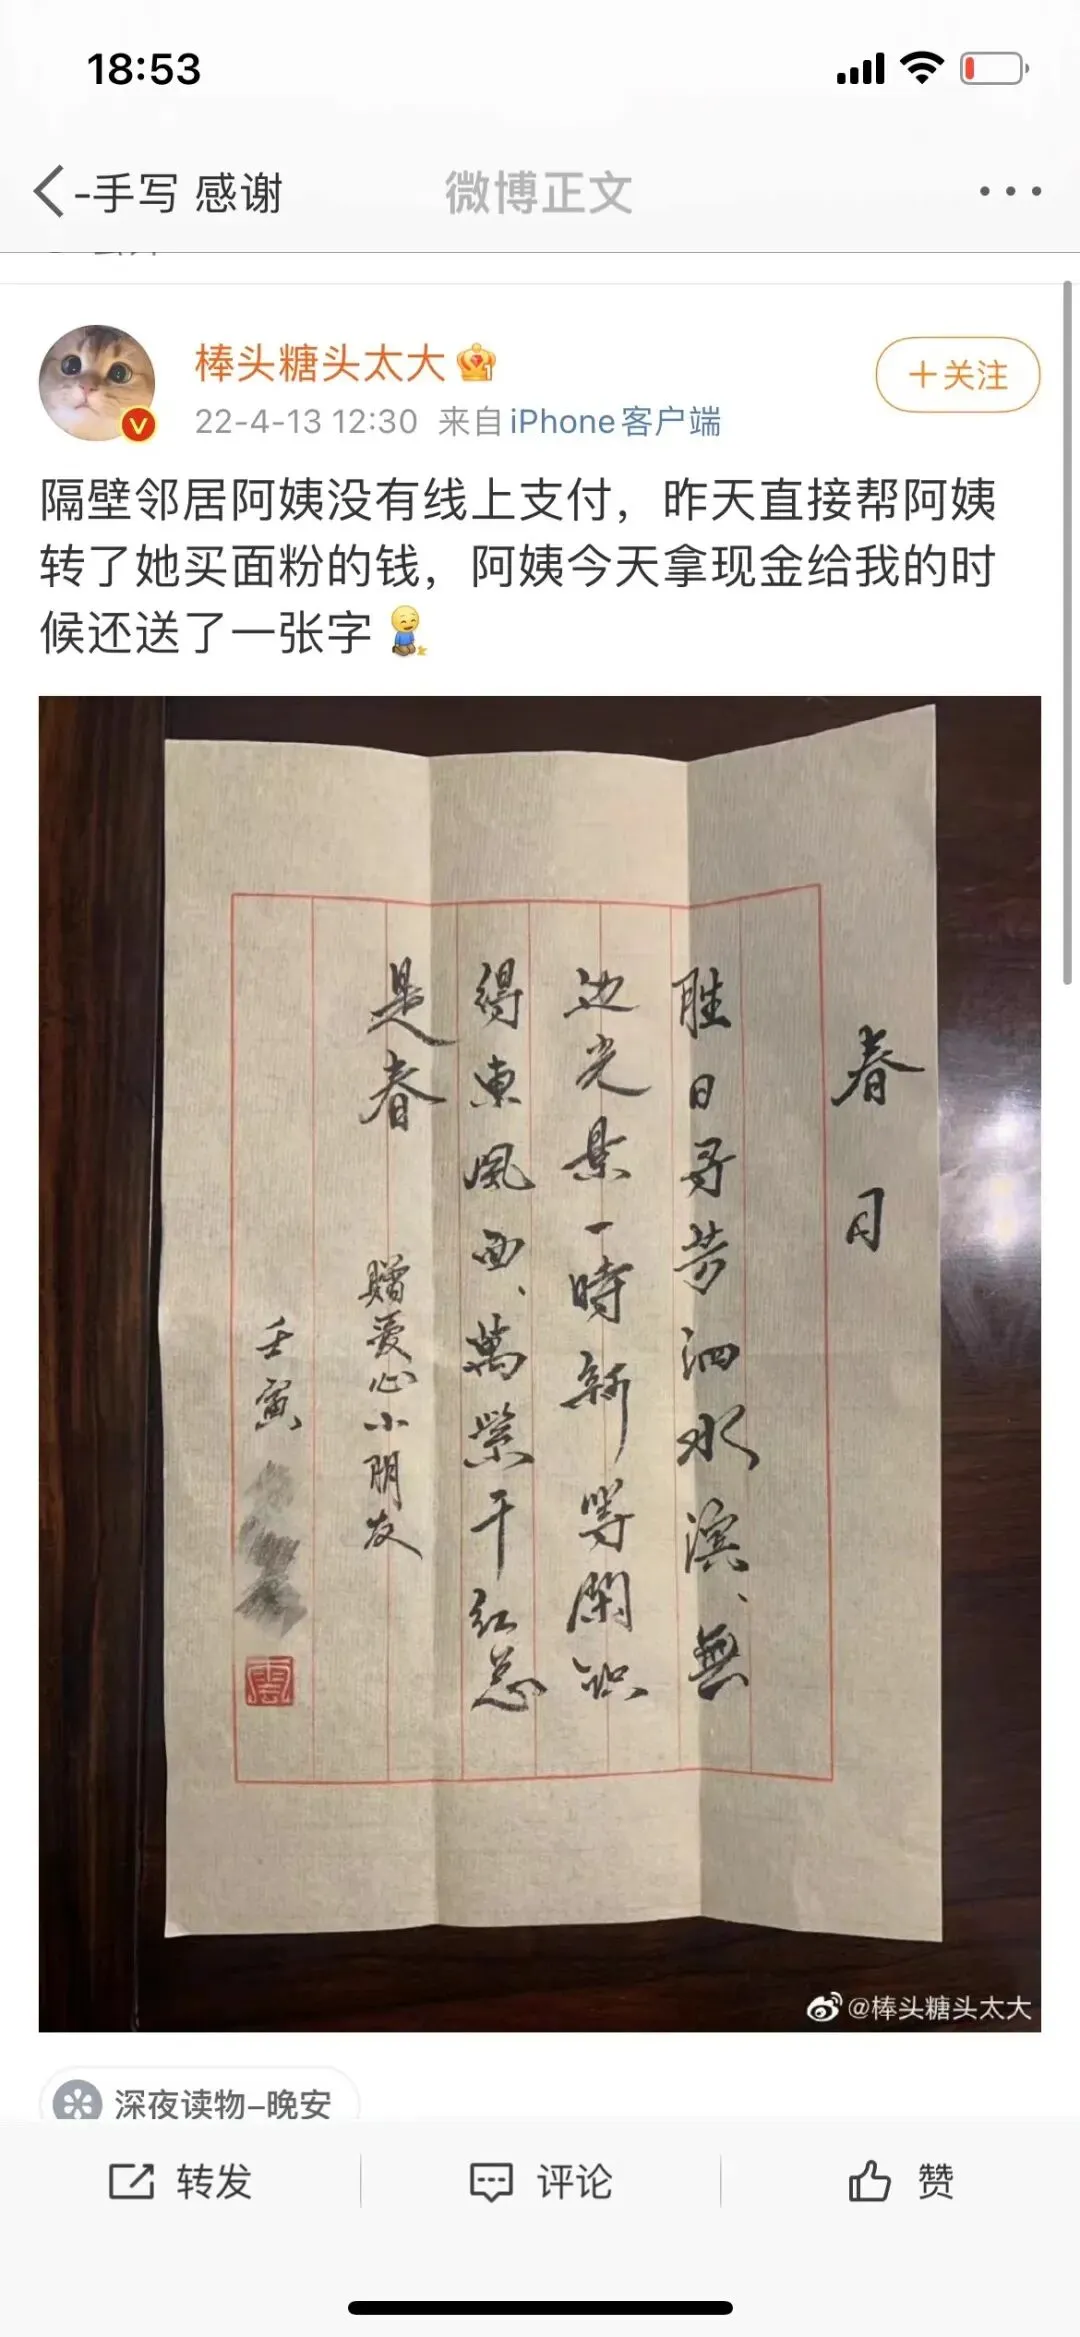 18:53
-手写 感谢
微博正文
棒头糖头太大
+关注
22-4-13 12:30 来自 iPhone客户端
隔壁邻居阿姨没有线上支付，昨天直接帮阿姨
转了她买面粉的钱，阿姨今天拿现金给我的时
候还送了一张字
春日
胜日寻芳泗水滨、無
边光景一時新等閑识
得東風面、萬紫千红总
是春
赠爱心小朋友
壬寅
雲
@棒头糖头太大
深夜读物-晚安
转发
评论
赞